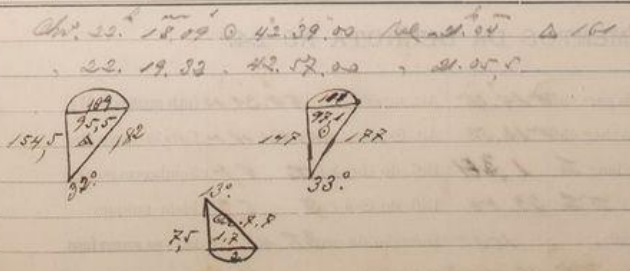 Chr. 22. 18.09 ⊙ 42.39.00 21.04 △ 161
" 22. 19.32 . 42.57.00 " 21.05,5
189
95,5
154,5 182
32°
188
97,1
⊙
147 177
33°
13°
7,7
7,5 1.7
2